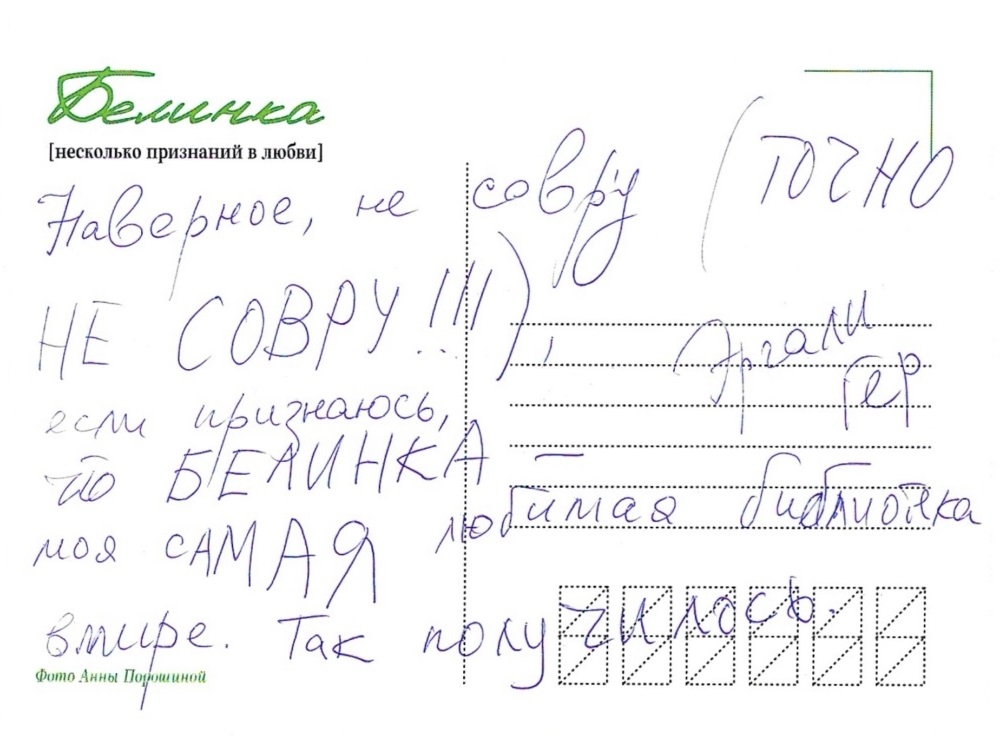 Белинка
[несколько признаний в любви]
Наверное, не совру (ТОЧНО
НЕ СОВРУ!!!),
если признаюсь,
что БЕЛИНКА –
моя САМАЯ любимая библиотека
в мире. Так получилось.
Эргали
Гер
Фото Анны Порошиной